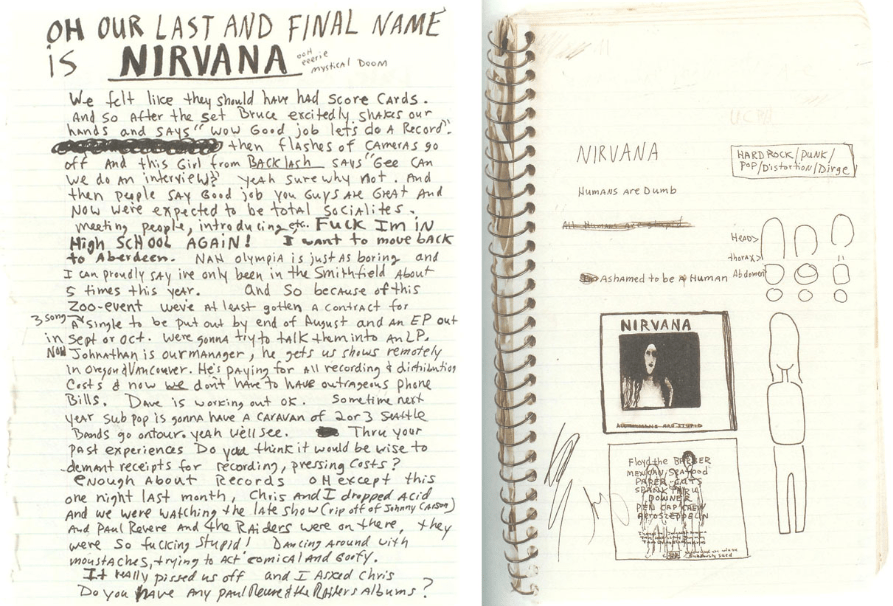 OH OUR LAST AND FINAL NAME
IS NIRVANA ooH eeerie
mystical Doom
We felt like they should have had score cards.
And so After the set Bruce excitedly shakes our
hands and says "wow Good job lets do A Record".
then flashes of cameras go
off And this Girl from BACKlash says "Gee Can
we do an interview? yeah sure why not. And
then people say Good job you Guys are GReat And
Now were expected to be total socialites.
meeting people, introducing etc. FUCK I'm iN
HigH SCHOOL AGAIN! I want to move BACK
to Aberdeen. NAH olympia is just as boring and
I can proudly say ive only been in the Smithfield About
5 times this year. And So because of this
Zoo-event weve At least gotten a contract for
3 song A Single to be put out by end of August and an EP out
in Sept or oct. were gonna try to talk them into An LP.
Now Johnathan is our manager, he gets us shows remotely
in oregon & Vancouver. He's paying for All recording & distribution
Costs & now we don't have to have outrageous phone
Bills. Dave is working out ok. Sometime next
year sub pop is gonna have a caravan of 2 or 3 Seattle
Bands go on tour. yeah we'll see. Thru your
past experiences Do you think it would be wise to
demant receipts for recording, pressing Costs?
enough About Records oH except this
one night last month, Chris and I dropped Acid
And we were watching the late show (rip off of Johnny Carson)
And Paul Revere and the Raiders were on there, they
were So fucking Stupid! Dancing around with
moustaches, trying to Act comical and Goofy.
It really pissed us off and I Asked Chris
Do you have Any Paul Revere & the Raiders Albums?
NIRVANA
HARD ROCK/PUNK/
POP/Distortion/Dirge
Humans are Dumb
Head>
thorax>
Ashamed to be a Human
Abdomen
NIRVANA
Floyd the BARBER
MEXICAN SEAFOOD
PAPER CUTS
SPANK THRU
DOWNER
PEN CAP CHEW
AEROSZEPPELIN